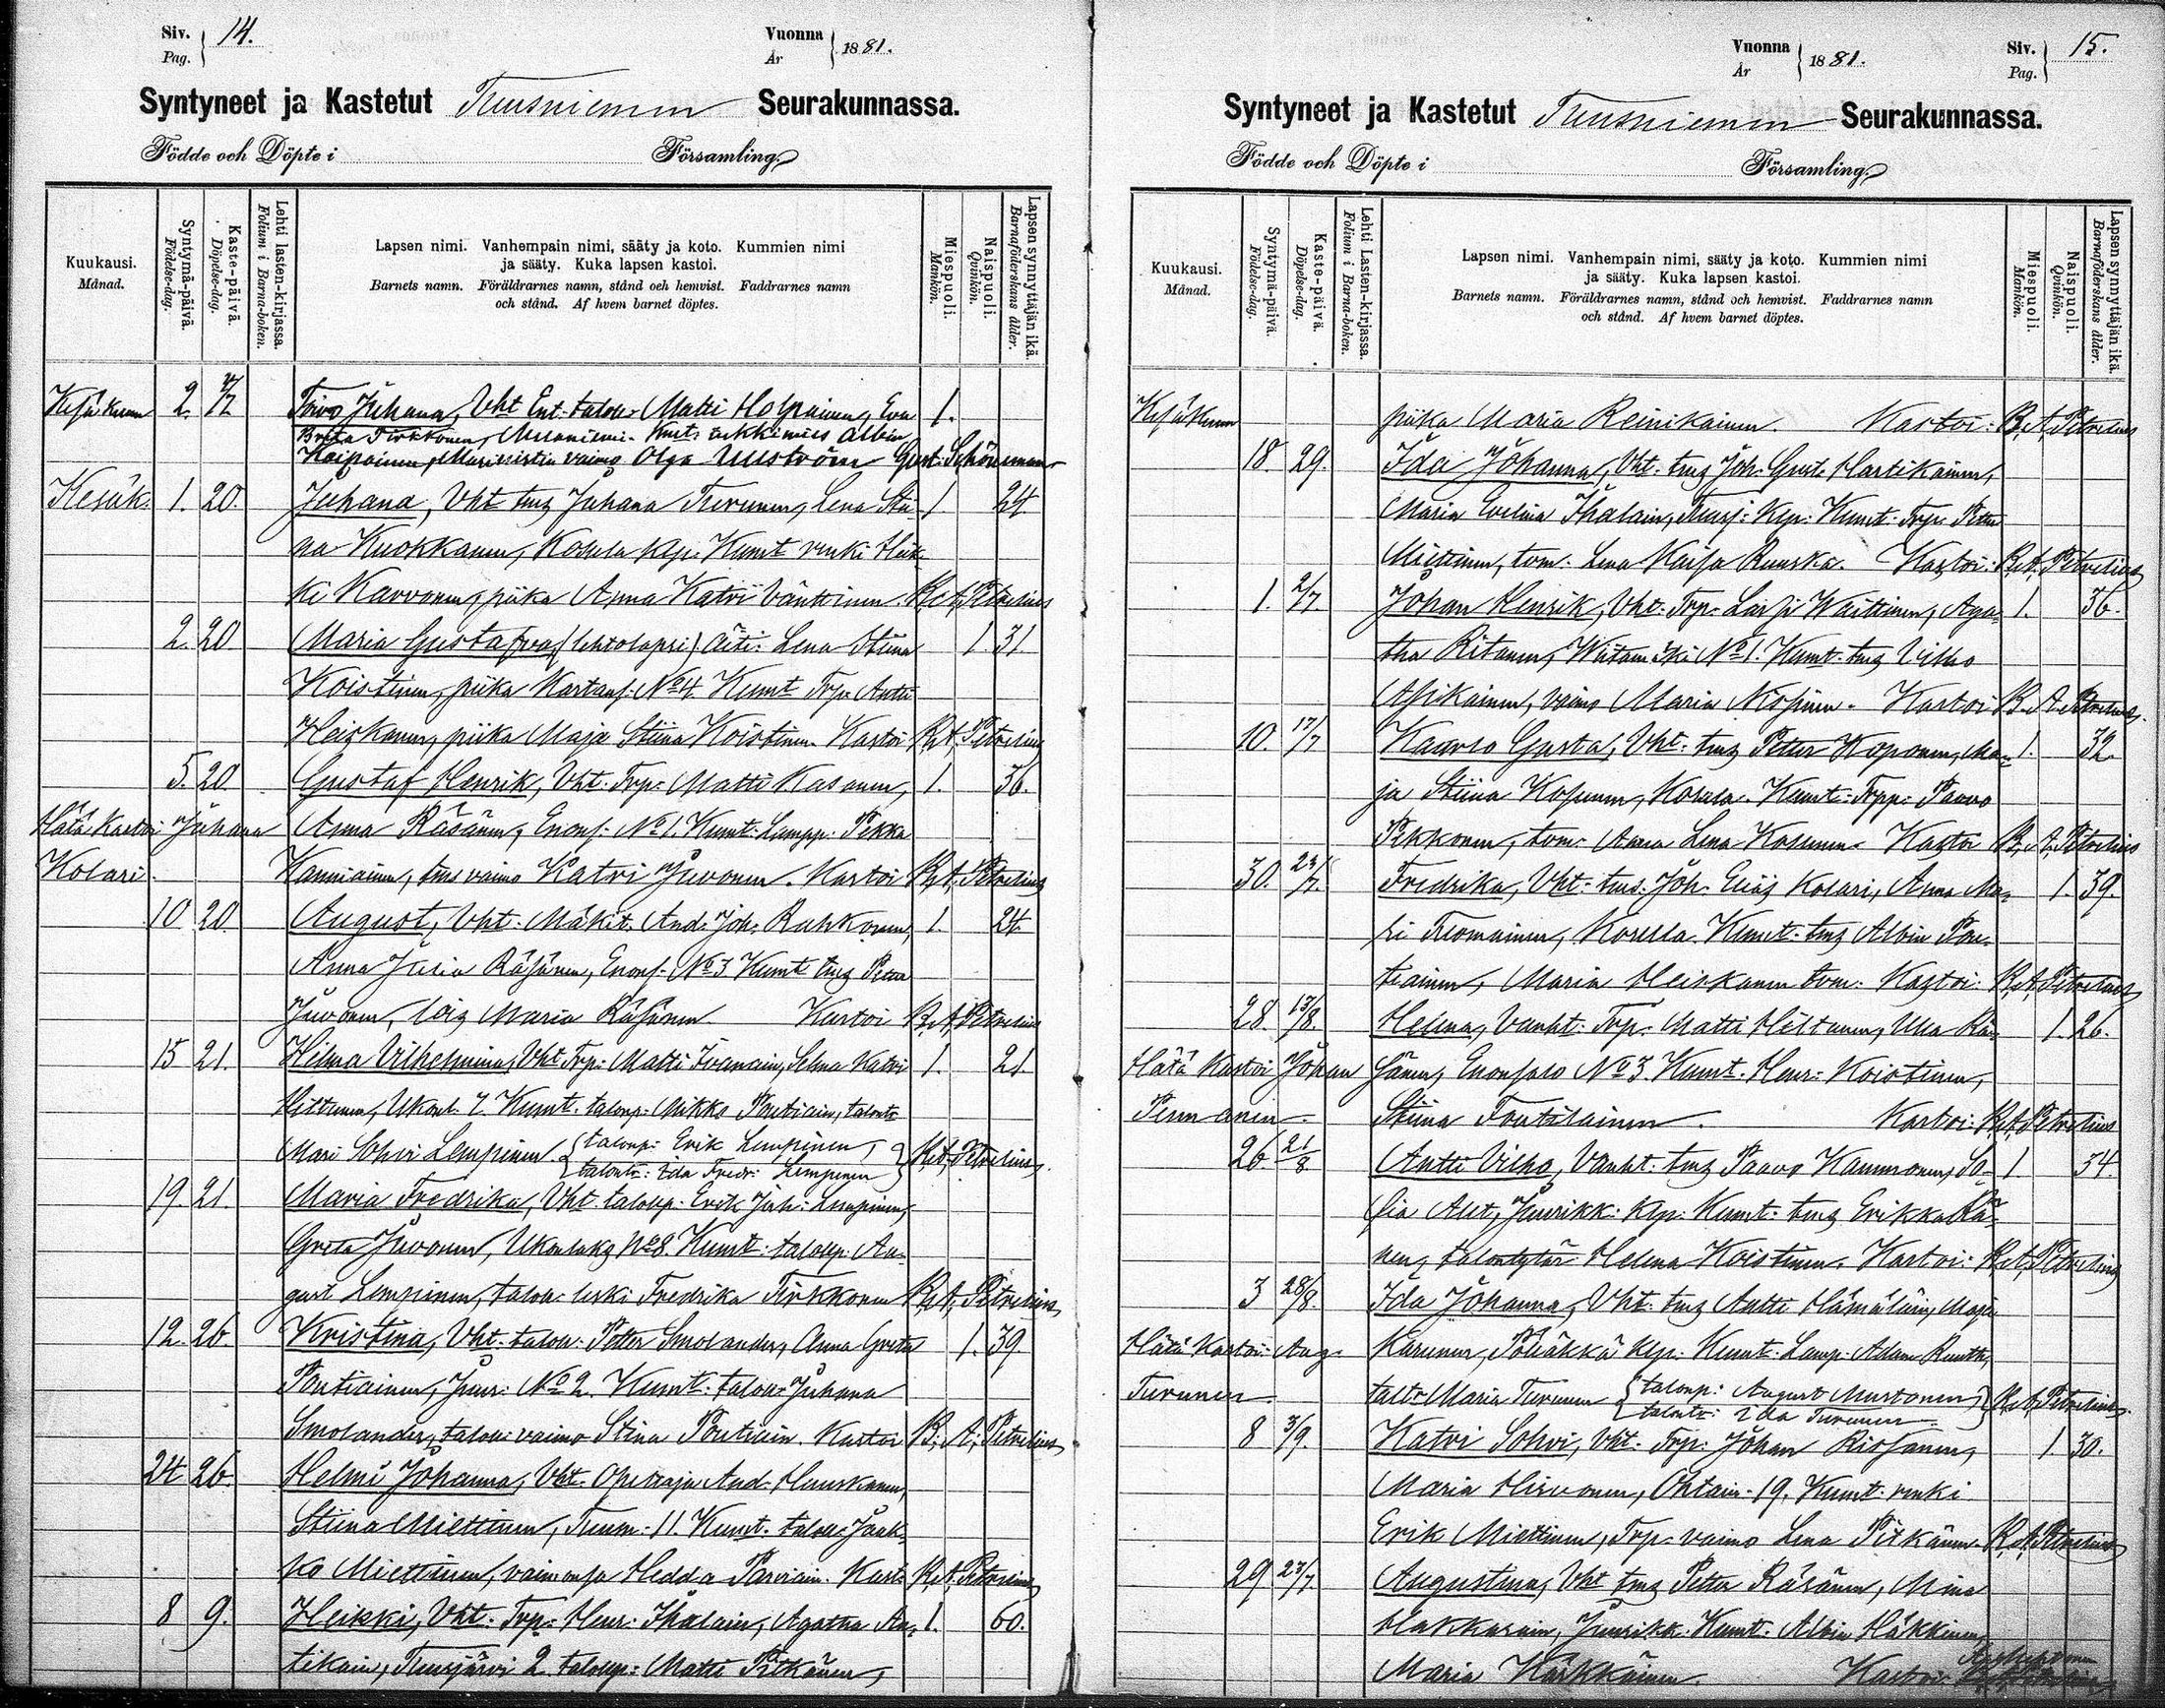 Siv. Pag. 14. Vuonna År 1881.
Syntyneet ja Kastetut Tuusniemen Seurakunnassa.
Födde och Döpte i Församling.
Kuukausi. Månad.
Syntymä-päivä. Födelse-dag.
Kaste-päivä. Döpelse-dag.
Lehti lasten-kirjassa. Folium i Barna-boken.
Lapsen nimi. Vanhempain nimi, sääty ja koto. Kummien nimi
ja sääty. Kuka lapsen kastoi.
Barnets namn. Föräldrarnes namn, stånd och hemvist. Faddrarnes namn
och stånd. Af hvem barnet döptes.
Miespuoli. Mankön.
Naispuoli. Qvinkön.
Lapsen synnyttäjän ikä. Barnaföderskans ålder.
Kesäkuun 2. Toivo Juhana, Vht Ent. talon. Matti Holpainen, Eva 1.
Brita Tirkkonen, Kmt: tukkimies Albin
Kaipainen, vaimo Olga Gust: Schöneman
Kesäk. 1. 20. Juhana, Vht tmz Juhana Turunen, Lena Sti- 1 24
na Kuokkanen, Kosula klp. Kumt renki Heik-
ki Karvonen, piika Anna Katri Väntinen. K. A. Petrelius
2. 20 Maria Gustafva (lehtolapsi) äiti: Lena Stiina 1. 31
Koistinen, piika Kartans: No 4. Kumt Trp. Antti
Heiskanen, piika Maja Stiina Koistinen Kastoi K. A. Petrelius
5. 20 Gustaf Henrik, Vht. Trp: Matti Kasanen, 1. 36.
Hätä Kastoi Juhana Anna Räsänen, Enons: No 1. Kumt: Lampp. Pekka
Kolari. Kanniainen, tms vaimo Katri Juvonen. Kastoi K. A. Petrelius
10 20. August, Vht: Mäkit. And: Joh: Rahkonen, 1. 24
Anna Julia Räsänen, Enons. No 3 Kumt tmz Petter
Juvonen, loiz Maria Räsänen. Kastoi K. A. Petrelius
15 21. Hilma Vilhelmina, Vht Trp: Matti Ivanain, Selma Katri 1. 21.
Hiltunen, Ukonl. 7. Kumt. taloup: Mikko Poutiain, talontr
Mari Sohvi Lempinen {taloup: Erik Lempinen,
talontr: Ida Fredr: Lempinen} K. A. Petrelius
19. 21. Maria Fredrika, Vht. taloup. Erik Joh: Lempinen,
Greta Juvonen, Ukonlaks No 8. Kumt: taloup. Au-
gust Lempinen, talon leski Fredrika Tirkkonen K. A. Petrelius
12. 26. Kristina, Vht: talon: Petter Smolander, Anna Greta 1. 39
Poutiainen, Juur: No 2. Kumt: talon: Juhana
Smolander, talon: vaimo Stina Poutiain. Kastoi K. A. Petrelius
24 26. Helmi Johanna, Vht: Opettaja And. Hauskanen,
Stiina Miettinen, Tuusn: 11. Kumt. talon: Jaak-
ko Miettinen, vaimonsa Hedda Parviain. Kast: K. A. Petrelius
8 9. Heikki, Vht: Trp. Henr: Ihalain, Agatha An- 1. 60.
tikain, Tuusjärvi 2 taloup: Matti Pitkänen,
Vuonna År 1881. Siv. Pag. 15.
Syntyneet ja Kastetut Tuusniemen Seurakunnassa.
Födde och Döpte i Församling.
Kuukausi. Månad.
Syntymä-päivä. Födelse-dag.
Kaste-päivä. Döpelse-dag.
Lehti Lasten-kirjassa. Folium i Barna-boken.
Lapsen nimi. Vanhempain nimi, sääty ja koto. Kummien nimi
ja sääty. Kuka lapsen kastoi.
Barnets namn. Föräldrarnes namn, stånd och hemvist. Faddrarnes namn
och stånd. Af hvem barnet döptes.
Miespuoli. Mankön.
Naispuoli. Qvinkön.
Lapsen synnyttäjän ikä. Barnaföderskans ålder.
Kesäkuun piika Maria Reinikainen. Kastoi: K. A. Petrelius
18. 29. Ida Johanna, Vht: tmz Joh: Gust: Hartikainen,
Maria Evelina Ihalain, Tuusj: klp: Kumt: Trp: Petter
Miettinen, tom: Lena Kaisa Ruuska. Kastoi: K. A. Petrelius
1. 2/7. Johan Henrik, Vht: Trp: Waittinen, Aga- 1. 36.
tha Ritanen, No 1. Kumt. tmz Vilho
Asikainen, vaimo Maria Nissinen. Kastoi K. A. Petrelius.
10. 17/7 Kaarlo Gusta, Vht: tmz Petter Koponen, Ma- 1. 32.
ja Stiina Kosunen, Kosula. Kumt: Trpp: Paavo
Pekkonen, tom: Anna Lena Kosunen. Kastoi K. A. Petrelius
30. 23/7. Fredrika, Vht: tms. Joh. Elias Kolari, Anna Ma- 1. 39.
ri Tuomainen, Kosula. Kumt: tmz Albin Pou-
tiainen, Maria Heiskanen tom: Kastoi: K. A. Petrelius
28. 13/8. Helena, Vanht: Trp: Matti Hiltunen, Ulla Rä- 1. 26.
Hätä Kastoi Johan sänen, Enonsalo No 3. Kumt. Henr: Koistinen,
Pennanen. Stiina Toutilainen. Kastoi: K. A. Petrelius
26 21/8 Antti Vilho, Vanht: tmz Paavo Kammonen, So- 1. 34.
fia Aut, Juurikk: klp: Kumt: tmz Erikka Rä-
nen, talontytär Helena Koistinen. Kastoi: K. A. Petrelius
3 28/8. Ida Johanna, Vht: tmz Antti Hämäläin, Maja
Hätä Kastoi: Aug. Karunen, Pöläkkä klp: Kumt: Lamp: Adam Ruuth,
Turunen. taltr Maria Turunen {taloup: August Mustonen,
talontr: Ida Turunen} K. A. Petrelius
8 3/9. Katri Sohvi, Vht: Trp: Johan Rissanen, 1 30.
Maria Hirvonen, Ohtain. 19. Kumt. renki
Erik Miettinen, Trp. vaimo Lena Pitkänen. K. A. Petrelius
29 23/7. Augustina, Vht tmz Petter Räsänen, Mina
Hakkarain, Juurikk. Kumt: Albin Häkkinen,
Maria Kärkkäinen. Kastoi: